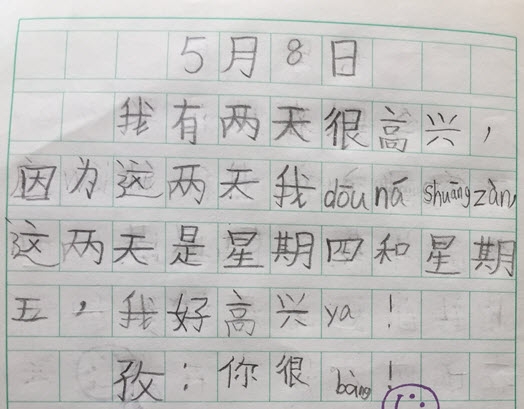 5月8日
我有两天很高兴，
因为这两天我dōu ná shuāng zàn,
这两天是星期四和星期
五，我好高兴ya！
孜：你很bàng！